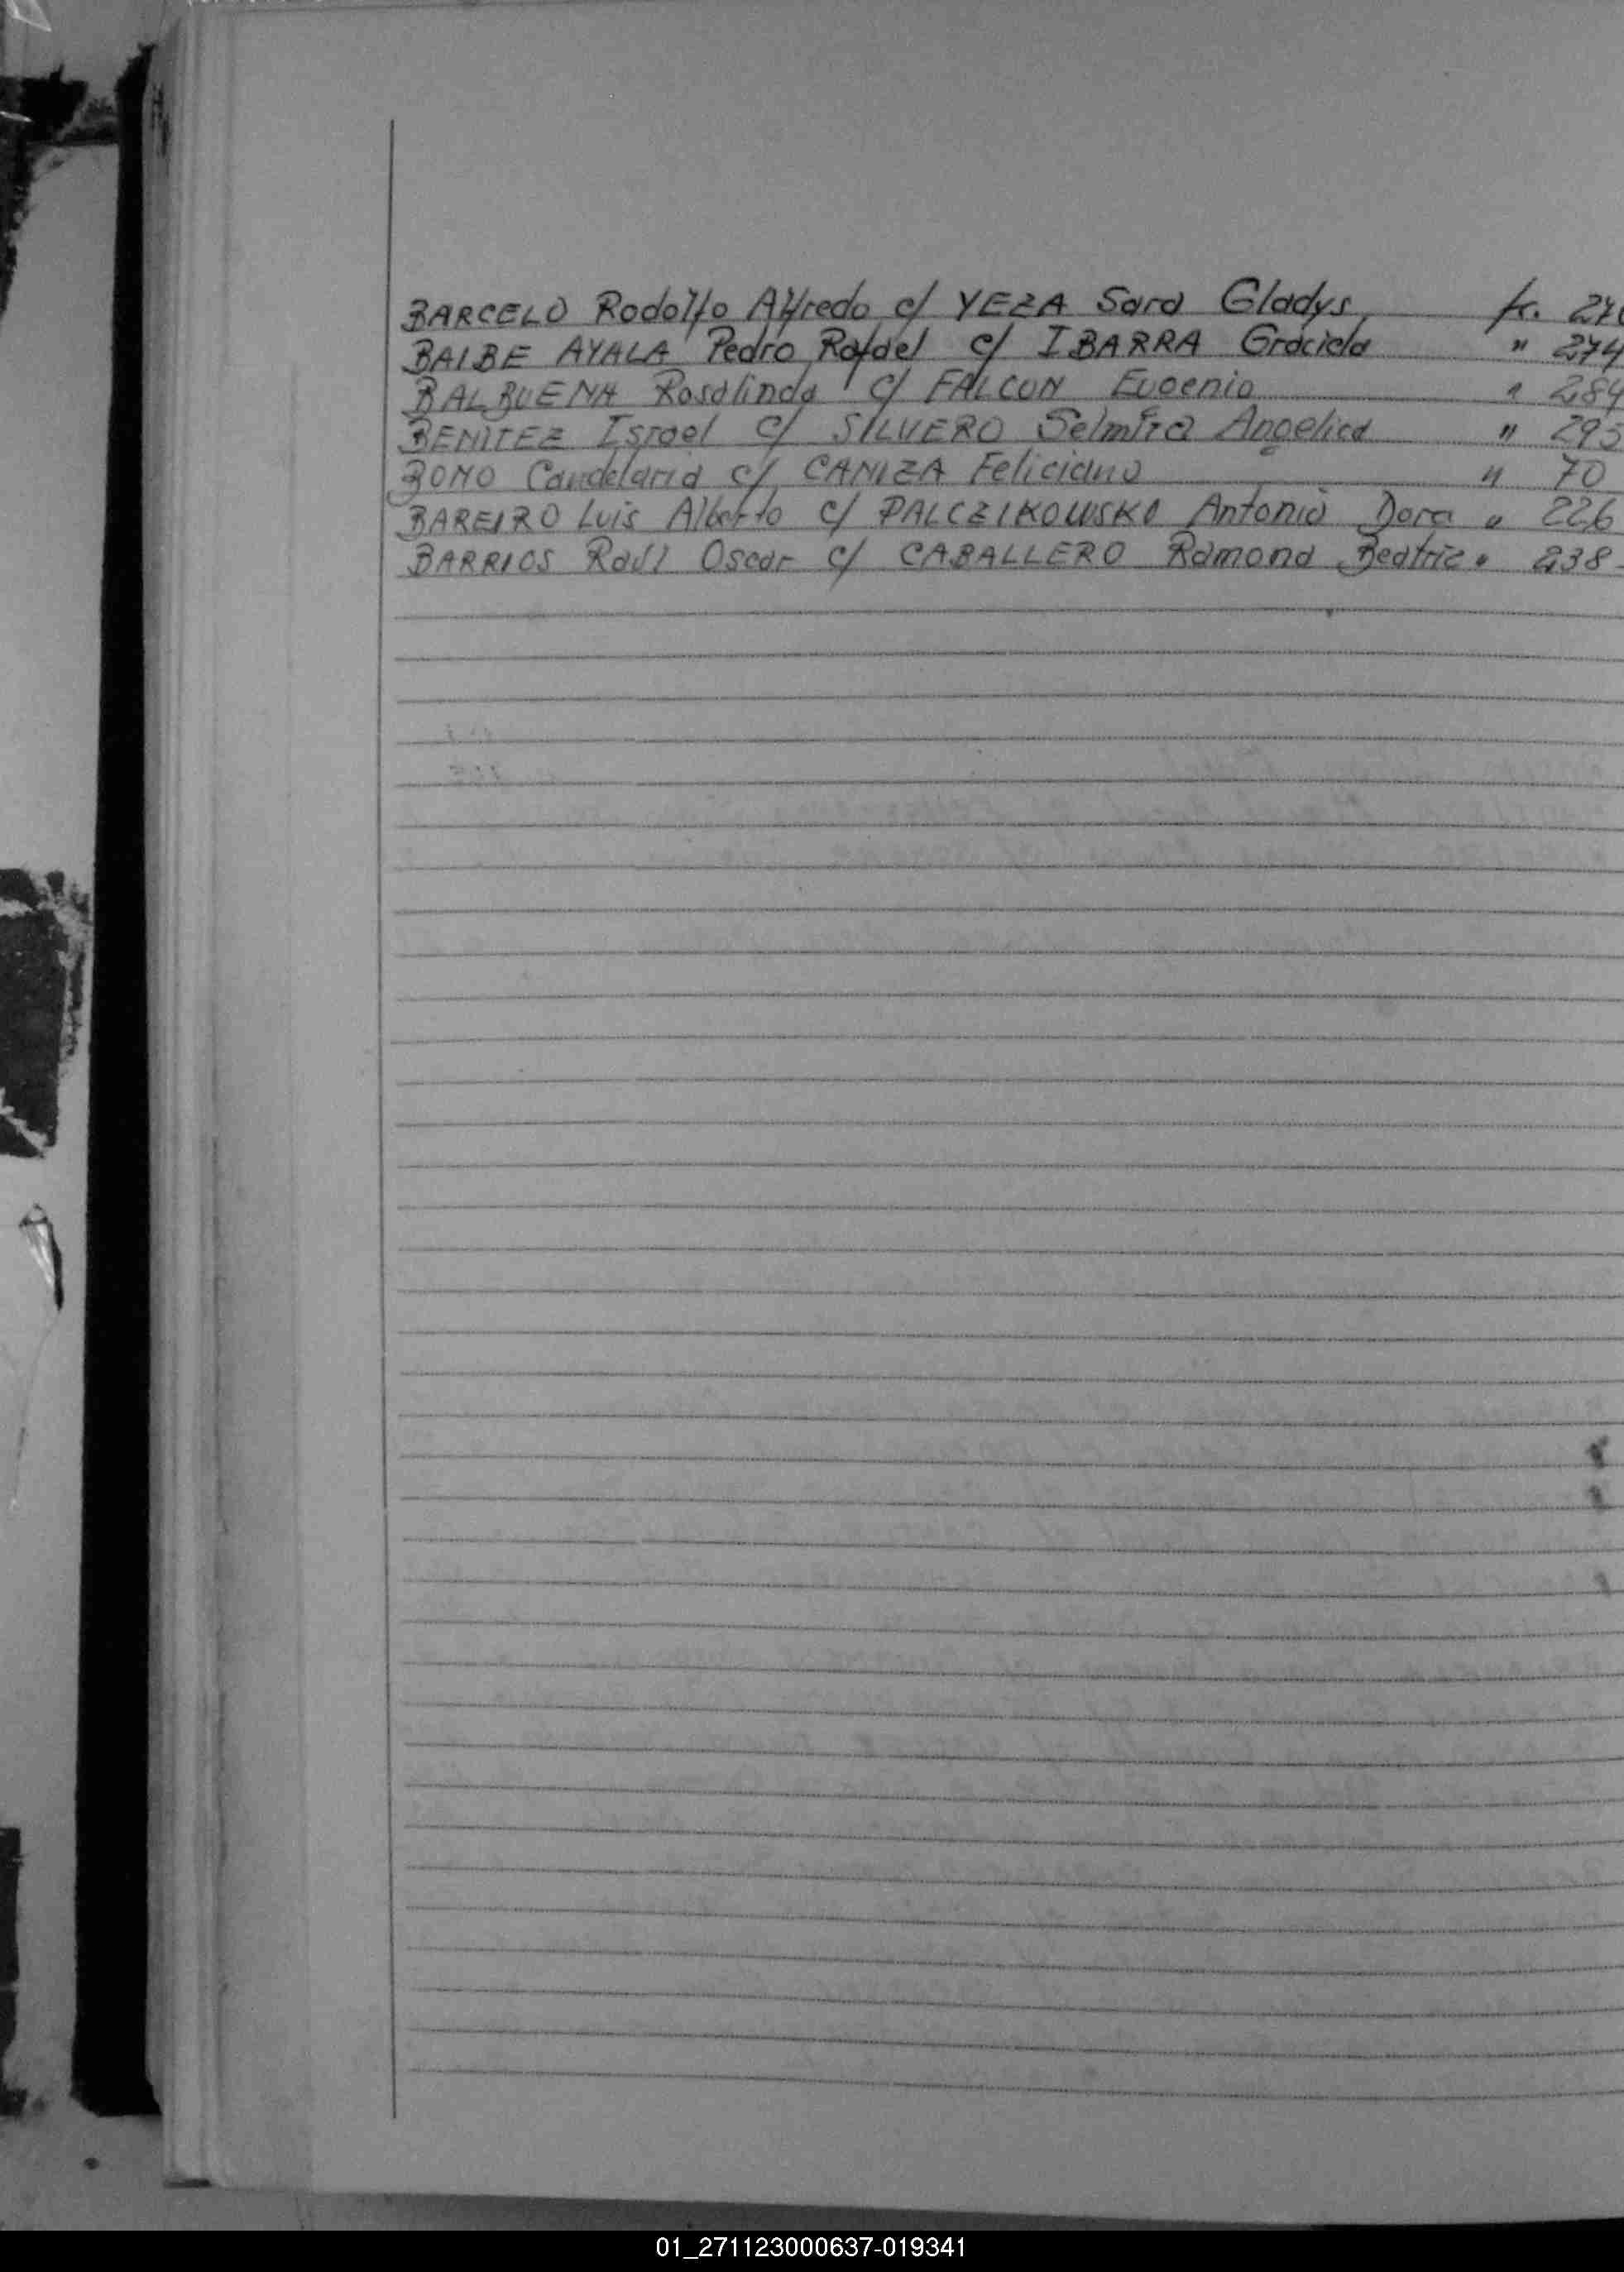 BARCELO Rodolfo Alfredo c/ YEZA Sara Gladys fr. 27
BAIBE AYALA Pedro Rafael c/ IBARRA Graciela " 274
BALBUENA Rosalinda c/ FALCON Eugenio " 284
BENITEZ Israel c/ SILVERO Selmira Angelica " 293
BOMO Candelaria c/ CANIZA Feliciano " 70
BAREIRO Luis Alberto c/ PALCZIKOWSKO Antonia Dora " 226
BARRIOS Raul Oscar c/ CABALLERO Ramona Beatriz " 238
01_271123000637-019341